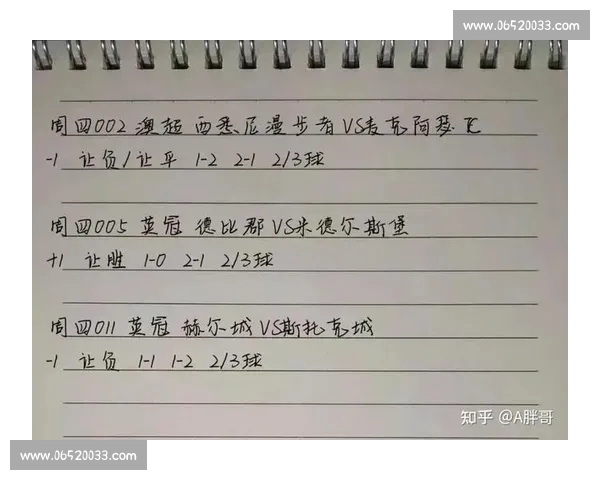 www.06520033.com
周四002 澳超 西悉尼漫步者VS麦克阿瑟FC
-1 让负/让平 1-2 2-1 2/3球
周四005 英冠 德比郡VS米德尔斯堡
+1 让胜 1-0 2-1 2/3球
周四011 英冠 赫尔城VS斯托克城
-1 让负 1-1 1-2 2/3球
知乎 @A胖哥
www.06520033.com